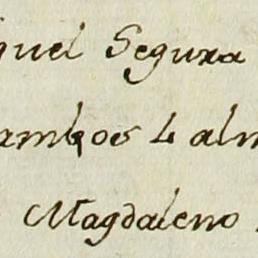 guel Segura
ambos L alm
Magdaleno